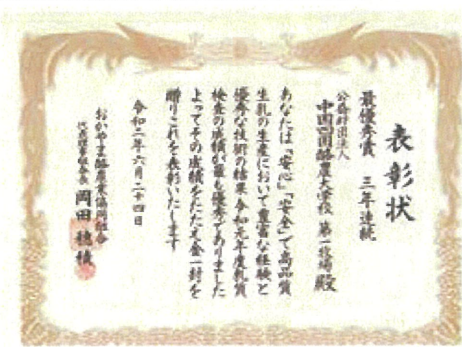 表彰状
最優秀賞 三年連続
公益財団法人
中国四国酪農大学校 第一牧場 殿
あなたは「安心」「安全」で高品質
生乳の生産において豊富な経験と
優秀な技術の結果令和元年度乳質
検査の成績が最も優秀でありました
よってその成績をたたえ金一封を
贈りこれを表彰いたします
令和二年六月二十四日
おかやま酪農業協同組合
代表理事組合長 岡田穂積